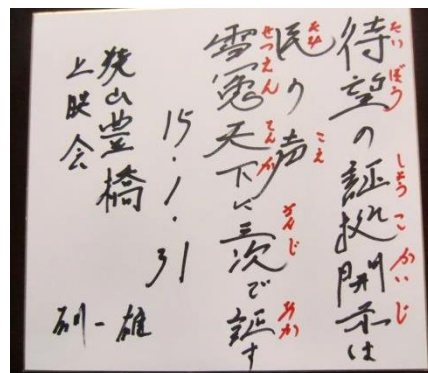 待望の証拠開示は
たいぼう しょうこかいじ
民の声
たみ こえ
雪冤天下に三次で証す
せつえん てんか さんじ あか
15.1.31
狭山豊橋
上映会
石川一雄